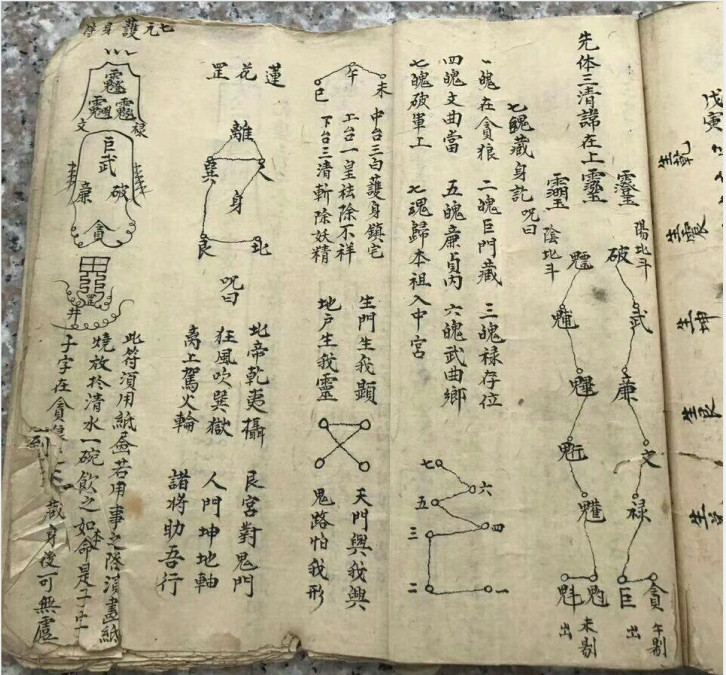 戊寅
生乾
生震
生坤
生艮
先体三清諱在上
陽北斗
破
武
廉
文
禄
巨
貪
午剔
出
陰北斗
魁
未剔
出
七魄藏身訣 咒曰
一魄在貪狼 二魄巨門藏 三魄禄存位
四魄文曲當 五魄廉貞内 六魄武曲鄉
七魄破軍上 七魂歸本祖入中宮
七
六
五
四
三
二
一
午
未
巳
中台三白護身鎮宅
工台一皇祛除不祥
下台三清斬除妖精
生門生我顕 天門與我興
地户生我靈 鬼路怕我形
蓮花罡
離
巽
身
艮
咒曰
北帝乾夷攝 艮宮對鬼門
狂風吹巽嶽 人門坤地軸
离上駕火輪 諸將助吾行
七元護身
文
禄
巨武
廉
破
貪
罡
井
此符須用紙画若用事之際須畫紙
燒放於清水一碗飲之如本命是子
子字在貪 藏身後可無慮